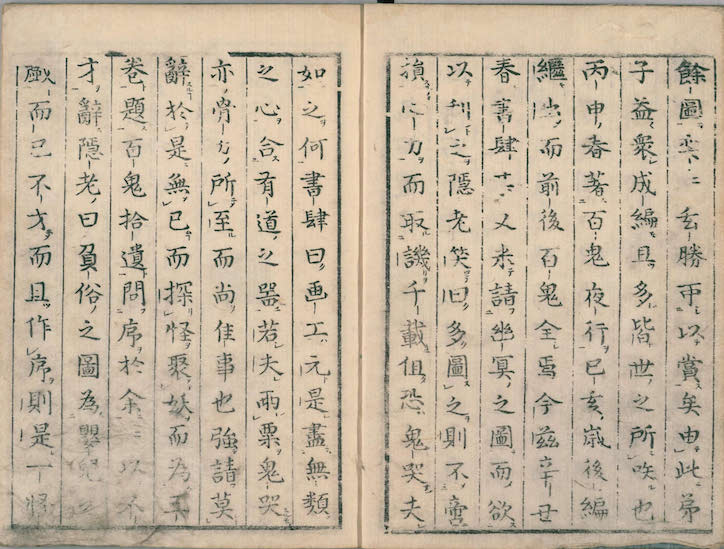 餘圖玄勝而以賞矣由此弟
子益衆成編且多皆世之所咲也
丙申春著百鬼夜行已亥歳後編
繼出而前後百鬼全焉今茲辛丑
春書肆又来請幽冥之圖而欲
以刋之隱老笑曰多圖之則不啻
損心力而取譏千載但恐鬼哭夫
如之何書肆曰画工元是盡無類
之心含有道之器若夫雨粟鬼哭
亦骨力所至而尚佳事也強請莫
辭於是無已而探怪聚妖而為三
巻題百鬼拾遺問序於余以不
才辭隱老曰負俗之圖為嬰兒之
戯而已不才而且作序則是一怪